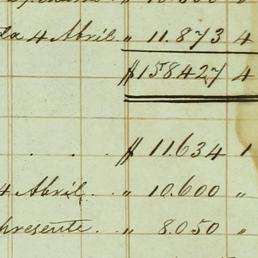 da 4 Abril " 11.873 4
$ 158.427 4
. . $ 11.634 1
4 Abril. " 10.600 "
presente. " 8.050 "